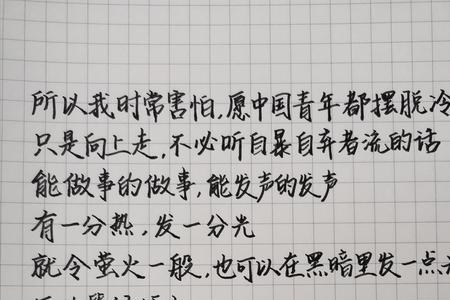 所以我时常害怕,愿中国青年都摆脱冷
只是向上走,不必听自暴自弃者流的话
能做事的做事,能发声的发声
有一分热,发一分光
就令萤火一般,也可以在黑暗里发一点